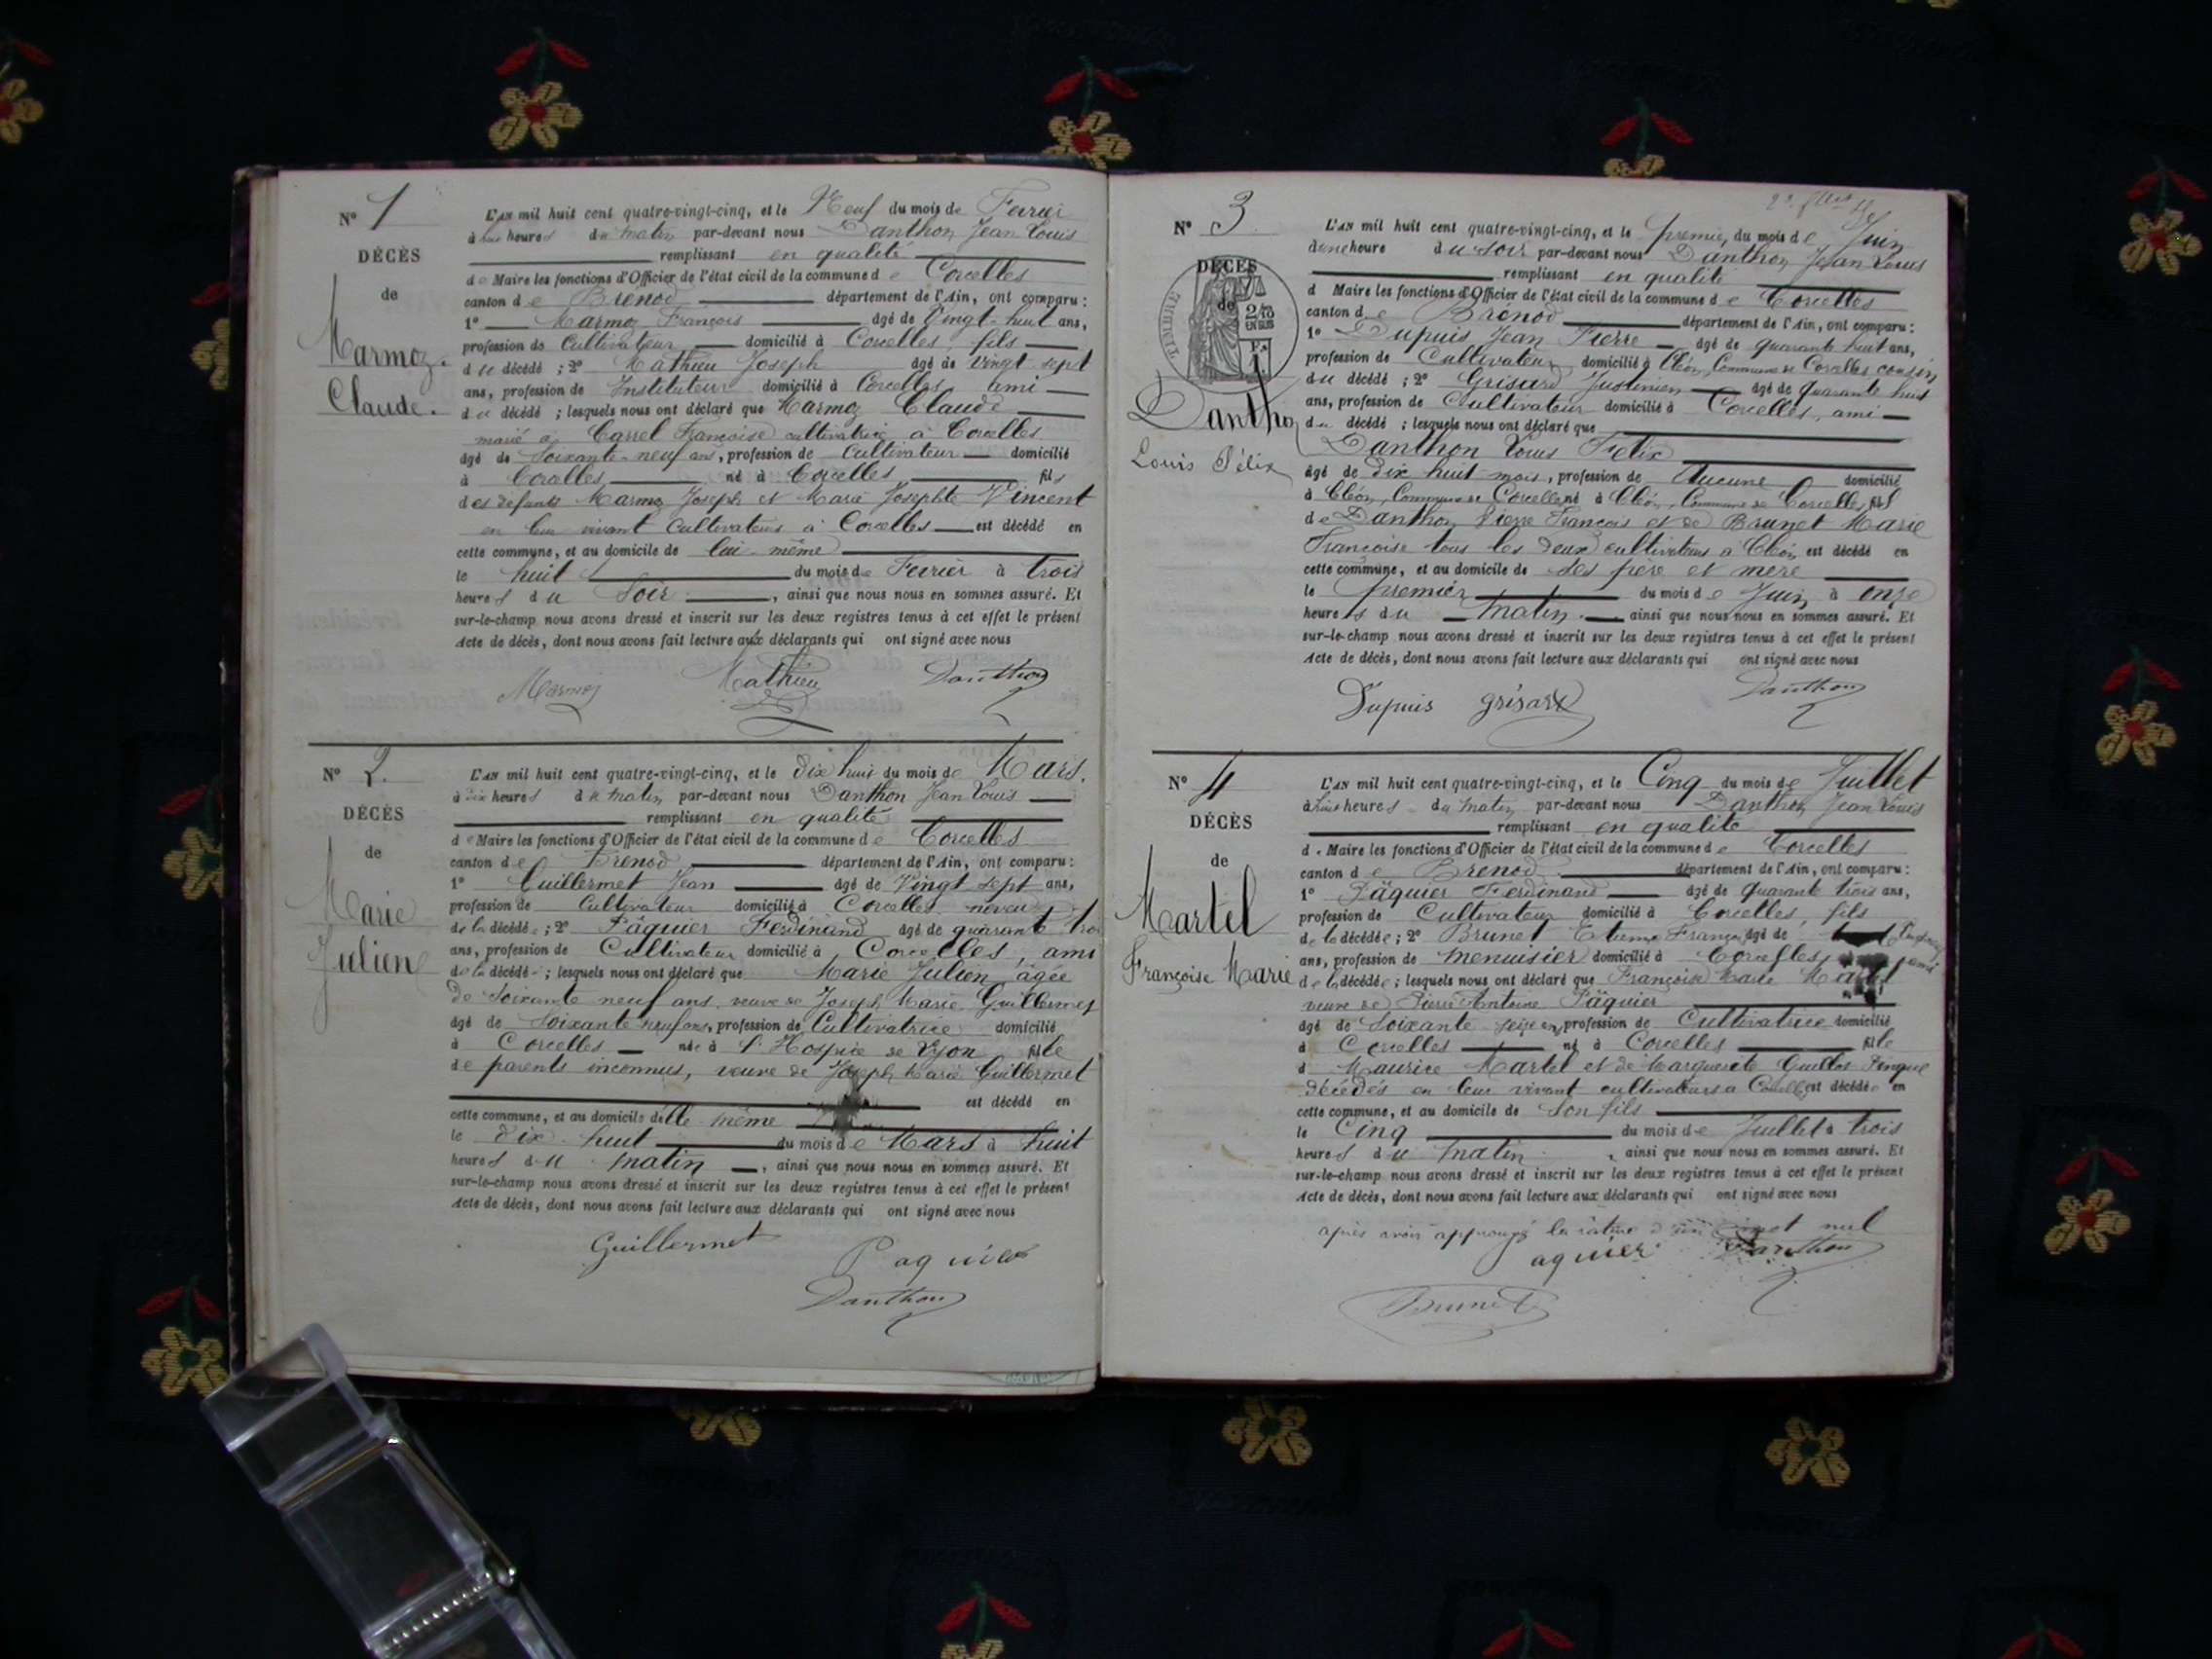 N° 1
DÉCÈS
de
Marmoz
Claude.
L'AN mil huit cent quatre-vingt-cinq, et le Neuf du mois de Fevrier
à heures du matin par-devant nous Danthon Jean Louis
remplissant en qualité
de Maire les fonctions d'Officier de l'état civil de la commune de Corcelles
canton de Brénod département de l'Ain, ont comparu :
1° Marmoz François âgé de Vingt-huit ans,
profession de Cultivateur domicilié à Corcelles, fils
du décédé ; 2° Mathieu Joseph âgé de vingt sept
ans, profession de Instituteur domicilié à Corcelles ami
du décédé ; lesquels nous ont déclaré que Marmoz Claude
marié à Carrel Françoise cultivatrice à Corcelles
âgé de Soixante-neuf ans, profession de Cultivateur domicilié
à Corcelles né à Corcelles fils
des defunts Marmoz Joseph et Marie Josephte Vincent
en leur vivant Cultivateurs à Corcelles est décédé en
cette commune, et au domicile de lui-même
le huit du mois de Fevrier à trois
heures du Soir, ainsi que nous nous en sommes assuré. Et
sur-le-champ nous avons dressé et inscrit sur les deux registres tenus à cet effet le présent
Acte de décès, dont nous avons fait lecture aux déclarants qui ont signé avec nous
Marmoz Mathieu Danthon
N° 2.
DÉCÈS
de
Marie
Julien
L'AN mil huit cent quatre-vingt-cinq, et le dix huit du mois de Mars.
à dix heures du matin par-devant nous Danthon Jean Louis
remplissant en qualité
de Maire les fonctions d'Officier de l'état civil de la commune de Corcelles
canton de Brenod département de l'Ain, ont comparu :
1° Guillermet Jean âgé de Vingt sept ans,
profession de Cultivateur domicilié à Corcelles neveu
de la décédée ; 2° Pâquier Ferdinand âgé de quarante
ans, profession de Cultivateur domicilié à Corcelles, ami
de la décédée ; lesquels nous ont déclaré que Marie Julien âgée
de Soixante neuf ans veuve de Joseph Marie Guillermet
âgé de Soixante neuf ans, profession de Cultivatrice domicilié
à Corcelles née à l'Hospice de Lyon fille
de parents inconnus, veuve de Joseph Marie Guillermet
est décédé en
cette commune, et au domicile d'elle même
le dix-huit du mois de Mars à huit
heures du matin, ainsi que nous nous en sommes assuré. Et
sur-le-champ nous avons dressé et inscrit sur les deux registres tenus à cet effet le présent
Acte de décès, dont nous avons fait lecture aux déclarants qui ont signé avec nous
Guillermet Paquier
Danthon
N° 3
DÉCÈS
de
TIMBRE
2/10
EN SUS
Danthon
Louis Félix
L'AN mil huit cent quatre-vingt-cinq, et le premier du mois de Juin
d'une heure du soir par-devant nous Danthon Jean Louis
remplissant en qualité
d Maire les fonctions d'Officier de l'état civil de la commune de Corcelles
canton de Brénod département de l'Ain, ont comparu :
1° Dupuis Jean Pierre âgé de quarante huit ans,
profession de Cultivateur domicilié à Cléon, Commune de Corcelles cousin
du décédé ; 2° Grisard Justinien âgé de quarante huit
ans, profession de Cultivateur domicilié à Corcelles, ami
du décédé ; lesquels nous ont déclaré que
Danthon Louis Felix
âgé de dix huit mois, profession de Aucune domicilié
à Cléon, Commune de Corcelles né à Cléon, Commune de Corcelles fils
de Danthon Pierre François et de Brunet Marie
Françoise tous les deux cultivateurs à Cléon est décédé en
cette commune, et au domicile de Ses père et mère
le premier du mois de Juin à onze
heures du Matin. ainsi que nous nous en sommes assuré. Et
sur-le-champ nous avons dressé et inscrit sur les deux registres tenus à cet effet le présent
Acte de décès, dont nous avons fait lecture aux déclarants qui ont signé avec nous
Dupuis grisard Danthon
N° 4
DÉCÈS
de
Martel
Françoise Marie
L'AN mil huit cent quatre-vingt-cinq, et le Cinq du mois de Juillet
à heures du matin par-devant nous Danthon Jean Louis
remplissant en qualité
de Maire les fonctions d'Officier de l'état civil de la commune de Corcelles
canton de Brenod département de l'Ain, ont comparu :
1° Pâquier Ferdinand âgé de quarante trois ans,
profession de Cultivateur domicilié à Corcelles, fils
de la décédée ; 2° Brunet Etienne François âgé de
ans, profession de Menuisier domicilié à Corcelles ami
de la décédée ; lesquels nous ont déclaré que Françoise Marie Martel
veuve de Pierre Antoine Pâquier
âgé de Soixante seize ans, profession de Cultivatrice domicilié
à Corcelles né à Corcelles fille
d Maurice Martel et de Marguerite Guillot
décédés en leur vivant cultivateurs à est décédée en
cette commune, et au domicile de Son fils
le Cinq du mois de Juillet à trois
heures du Matin, ainsi que nous nous en sommes assuré. Et
sur-le-champ nous avons dressé et inscrit sur les deux registres tenus à cet effet le présent
Acte de décès, dont nous avons fait lecture aux déclarants qui ont signé avec nous
après avoir approuvé la rature d'un mot nul
aquier Danthon
Brunet